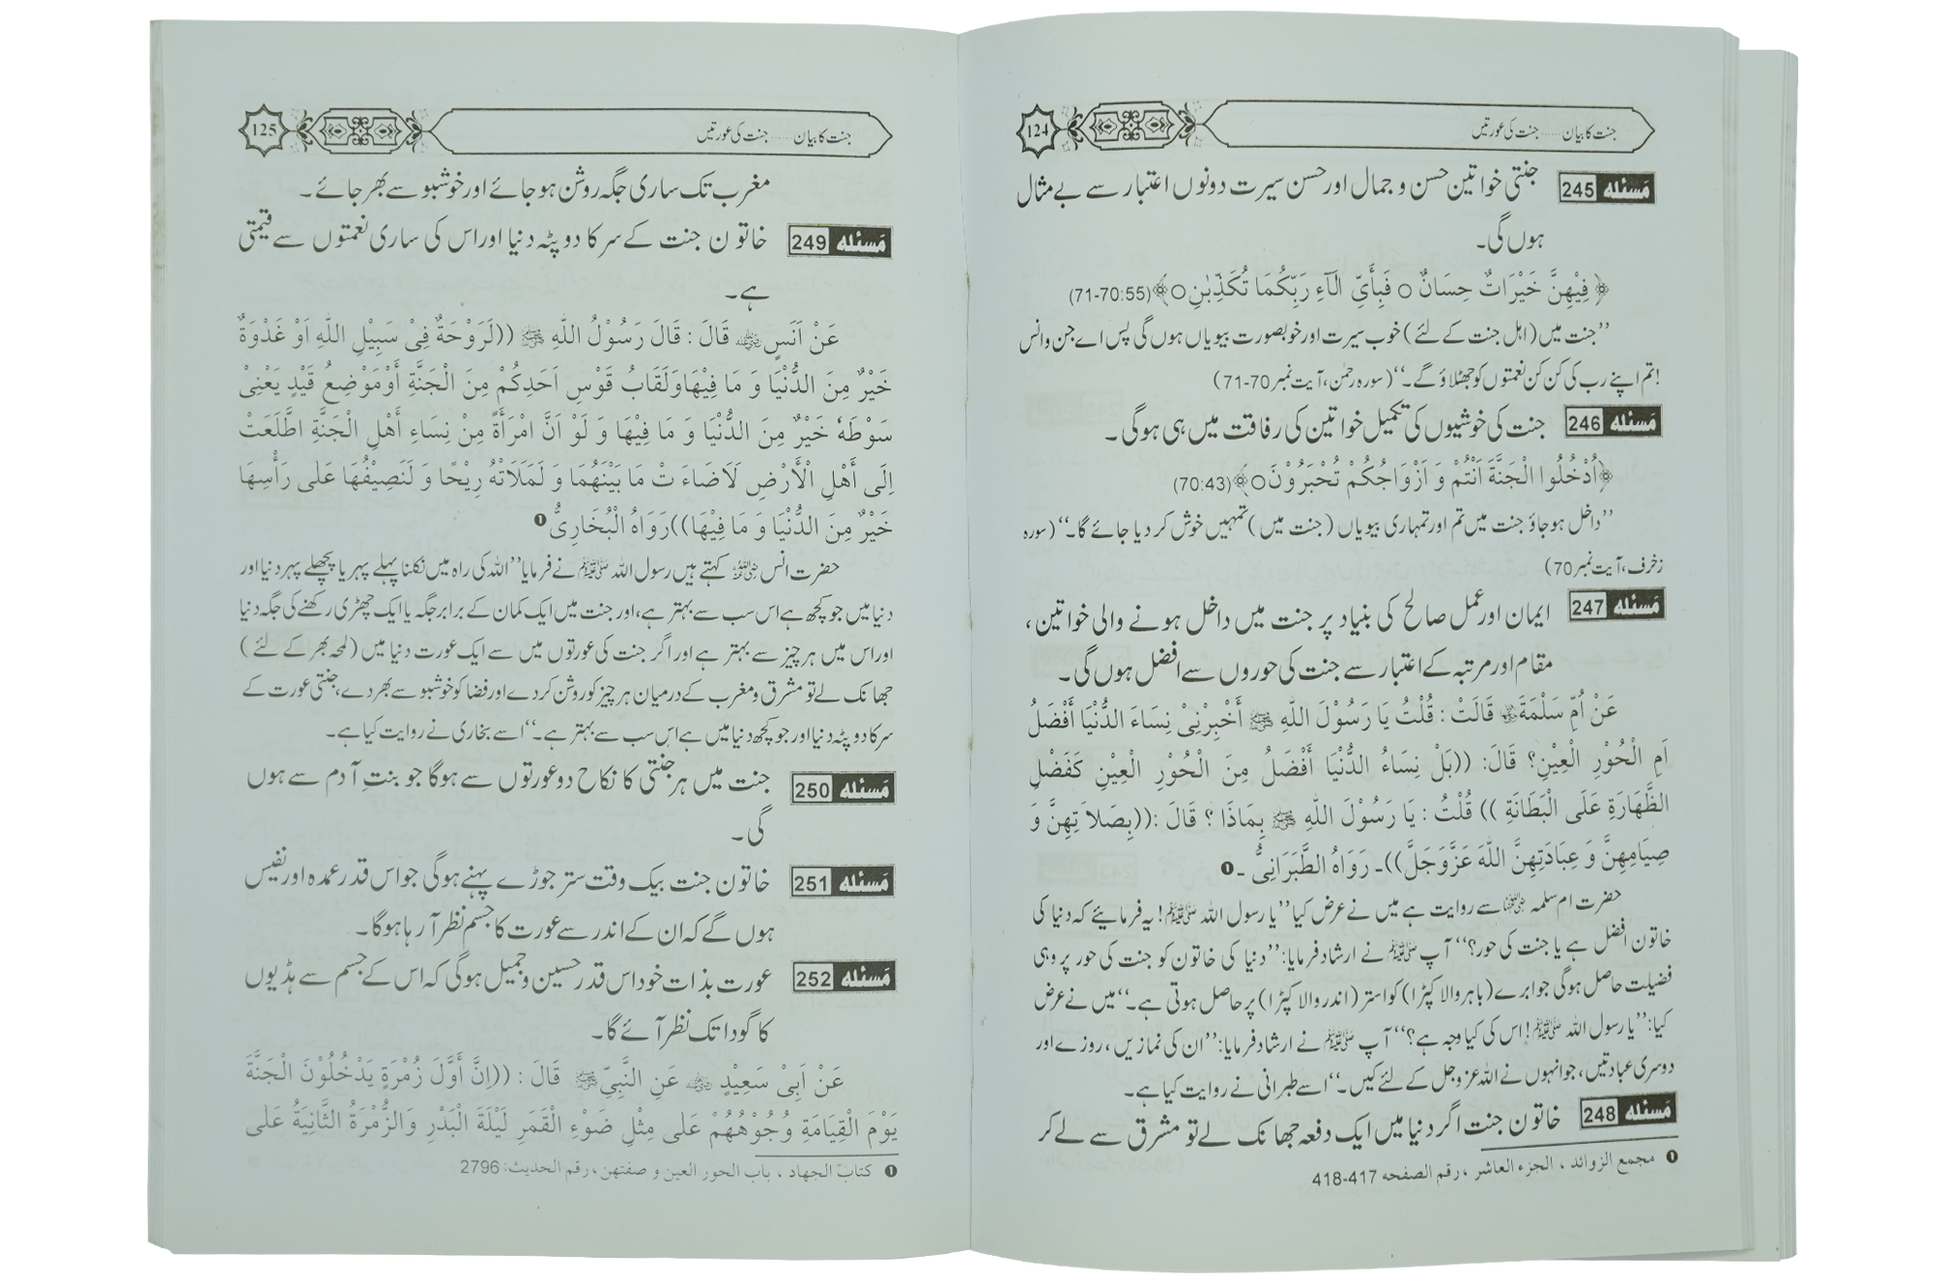 جنت کا بیان ...... جنت کی عورتیں
124
مَسئله 245 جنتی خواتین حسن و جمال اور حسن سیرت دونوں اعتبار سے بے مثال
ہوں گی۔
﴿ فِيْهِنَّ خَيْرَاتٌ حِسَانٌ ○ فَبِأَيِّ الَآءِ رَبِّكُمَا تُكَذِّبٰنِ○﴾(55:70-71)
’’جنت میں (اہل جنت کے لئے) خوب سیرت اور خوبصورت بیویاں ہوں گی پس اے جن وانس
!تم اپنے رب کی کن کن نعمتوں کو جھٹلاؤ گے۔‘‘(سورہ رحمٰن، آیت نمبر 70-71)
مَسئله 246 جنت کی خوشیوں کی تکمیل خواتین کی رفاقت میں ہی ہوگی۔
﴿اُدْخُلُوا الْجَنَّةَ اَنْتُمْ وَ اَزْوَاجُكُمْ تُحْبَرُوْنَ○﴾(70:43)
’’داخل ہوجاؤ جنت میں تم اور تمہاری بیویاں (جنت میں) تمہیں خوش کر دیا جائے گا۔‘‘(سورہ
زخرف، آیت نمبر 70)
مَسئله 247 ایمان اور عمل صالح کی بنیاد پر جنت میں داخل ہونے والی خواتین،
مقام اور مرتبہ کے اعتبار سے جنت کی حوروں سے افضل ہوں گی۔
عَنْ اُمِّ سَلْمَةَ قَالَتْ : قُلْتُ يَا رَسُوْلَ اللّٰهِ ﷺ أَخْبِرْنِىْ نِسَاءَ الدُّنْيَا أَفْضَلُ
اَمِ الْحُوْرِ الْعِيْنِ؟ قَالَ: ((بَلْ نِسَاءُ الدُّنْيَا أَفْضَلُ مِنَ الْحُوْرِ الْعِيْنِ كَفَضْلِ
الظَّهَارَةِ عَلَى الْبَطَانَةِ )) قُلْتُ : يَا رَسُوْلَ اللّٰهِ ﷺ بِمَاذَا ؟ قَالَ :((بِصَلاَتِهِنَّ وَ
صِيَامِهِنَّ وَ عِبَادَتِهِنَّ اللّٰهَ عَزَّوَجَلَّ))۔ رَوَاهُ الطَّبَرَانِىُّ ۔❶
حضرت ام سلمہ سے روایت ہے میں نے عرض کیا’’یا رسول اللہ ﷺ! یہ فرمایئے کہ دنیا کی
خاتون افضل ہے یا جنت کی حور؟‘‘ آپ ﷺ نے ارشاد فرمایا:’’دنیا کی خاتون کو جنت کی حور پر وہی
فضیلت حاصل ہوگی جو ابرے (باہر والا کپڑا) کو استر (اندر والا کپڑا) پر حاصل ہوتی ہے۔‘‘میں نے عرض
کیا:’’یا رسول اللہ ﷺ! اس کی کیا وجہ ہے؟‘‘ آپ ﷺ نے ارشاد فرمایا:’’ان کی نمازیں، روزے اور
دوسری عبادتیں، جو انہوں نے اللہ عزوجل کے لئے کیں۔‘‘اسے طبرانی نے روایت کیا ہے۔
مَسئله 248 خاتون جنت اگر دنیا میں ایک دفعہ جھانک لے تو مشرق سے لے کر
❶ مجمع الزوائد ، الجزء العاشر ، رقم الصفحه 417-418
جنت کا بیان ...... جنت کی عورتیں
125
مغرب تک ساری جگہ روشن ہو جائے اور خوشبو سے بھر جائے۔
مَسئله 249 خاتون جنت کے سر کا دوپٹہ دنیا اور اس کی ساری نعمتوں سے قیمتی
ہے۔
عَنْ اَنَسٍ قَالَ : قَالَ رَسُوْلُ اللّٰهِ ﷺ ((لَرَوْحَةٌ فِىْ سَبِيْلِ اللّٰهِ اَوْ غَدْوَةٌ
خَيْرٌ مِنَ الدُّنْيَا وَ مَا فِيْهَاوَلَقَابُ قَوْسِ اَحَدِكُمْ مِنَ الْجَنَّةِ أَوْمَوْضِعُ قَيْدٍ يَعْنِىْ
سَوْطَهٗ خَيْرٌ مِنَ الدُّنْيَا وَ مَا فِيْهَا وَ لَوْ اَنَّ امْرَأَةً مِنْ نِسَاءِ أَهْلِ الْجَنَّةِ اطَّلَعَتْ
اِلَى أَهْلِ الْأَرْضِ لَاَضَاءَ تْ مَا بَيْنَهُمَا وَ لَمَلَاَتْهُ رِيْحًا وَ لَنَصِيْفُهَا عَلٰى رَأْسِهَا
خَيْرٌ مِنَ الدُّنْيَا وَ مَا فِيْهَا))رَوَاهُ الْبُخَارِىُّ❶
حضرت انس کہتے ہیں رسول اللہ ﷺ نے فرمایا’’اللہ کی راہ میں نکلنا پہلے پہر یا پچھلے پہر دنیا اور
دنیا میں جو کچھ ہے اس سب سے بہتر ہے، اور جنت میں ایک کمان کے برابر جگہ یا ایک چھڑی رکھنے کی جگہ دنیا
اور اس میں ہر چیز سے بہتر ہے اور اگر جنت کی عورتوں میں سے ایک عورت دنیا میں (لمحہ بھر کے لئے )
جھانک لے تو مشرق و مغرب کے درمیان ہر چیز کو روشن کر دے اور فضا کو خوشبو سے بھر دے، جنتی عورت کے
سر کا دوپٹہ دنیا اور جو کچھ دنیا میں ہے اس سب سے بہتر ہے۔‘‘اسے بخاری نے روایت کیا ہے۔
مَسئله 250 جنت میں ہر جنتی کا نکاح دو عورتوں سے ہوگا جو بنت آدم سے ہوں
گی۔
مَسئله 251 خاتون جنت بیک وقت ستر جوڑے پہنے ہوگی جو اس قدر عمدہ اور نفیس
ہوں گے کہ ان کے اندر سے عورت کا جسم نظر آ رہا ہوگا۔
مَسئله 252 عورت بذات خود اس قدر حسین و جمیل ہوگی کہ اس کے جسم سے ہڈیوں
کا گودا تک نظر آئے گا۔
عَنْ اَبِىْ سَعِيْدٍ عَنِ النَّبِىِّ ﷺ قَالَ : ((اِنَّ أَوَّلَ زُمْرَةٍ يَدْخُلُوْنَ الْجَنَّةَ
يَوْمَ الْقِيَامَةِ وُجُوْهُهُمْ عَلٰى مِثْلِ ضَوْءِ الْقَمَرِ لَيْلَةَ الْبَدْرِ وَالزُّمْرَةُ الثَّانِيَةُ عَلٰى
❶ كتاب الجهاد ، باب الحور العين و صفتهن ، رقم الحديث: 2796